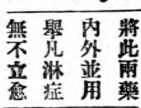 將此兩藥
內外並用
舉凡淋症
無不立愈